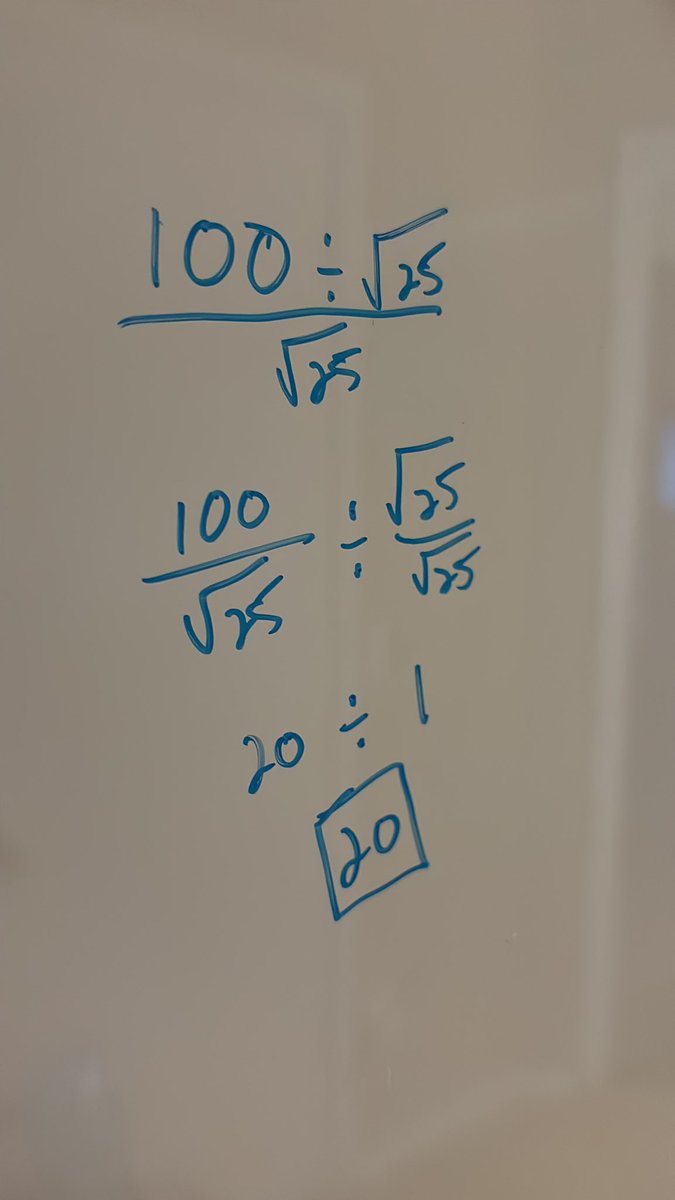 100 ÷ √25
√25
100 ÷ √25
√25 √25
20 ÷ 1
20